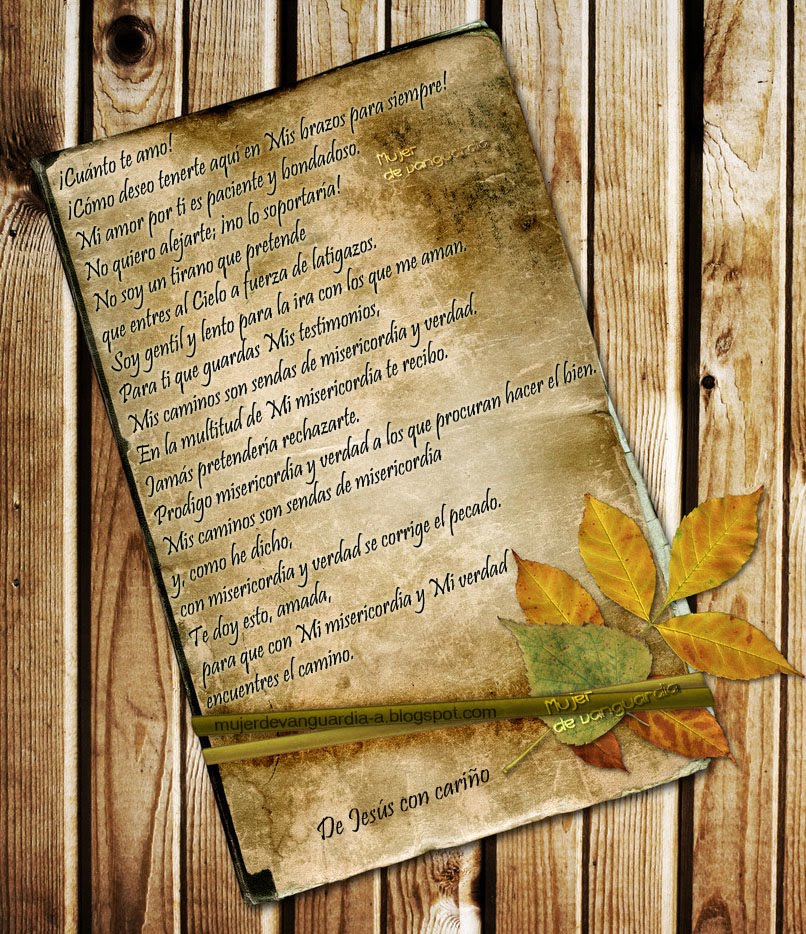 ¡Cuánto te amo!
¡Cómo deseo tenerte aquí en Mis brazos para siempre!
Mi amor por ti es paciente y bondadoso.
No quiero alejarte; ¡no lo soportaría!
No soy un tirano que pretende
que entres al Cielo a fuerza de latigazos.
Soy gentil y lento para la ira con los que me aman.
Para ti que guardas Mis testimonios,
Mis caminos son sendas de misericordia y verdad.
En la multitud de Mi misericordia te recibo.
Jamás pretendería rechazarte.
Prodigo misericordia y verdad a los que procuran hacer el bien.
Mis caminos son sendas de misericordia
y, como he dicho,
con misericordia y verdad se corrige el pecado.
Te doy esto, amada,
para que con Mi misericordia y Mi verdad
encuentres el camino.
De Jesús con cariño
Mujer
de vanguardia
mujerdevanguardia-a.blogspot.com
Mujer
de vanguardia